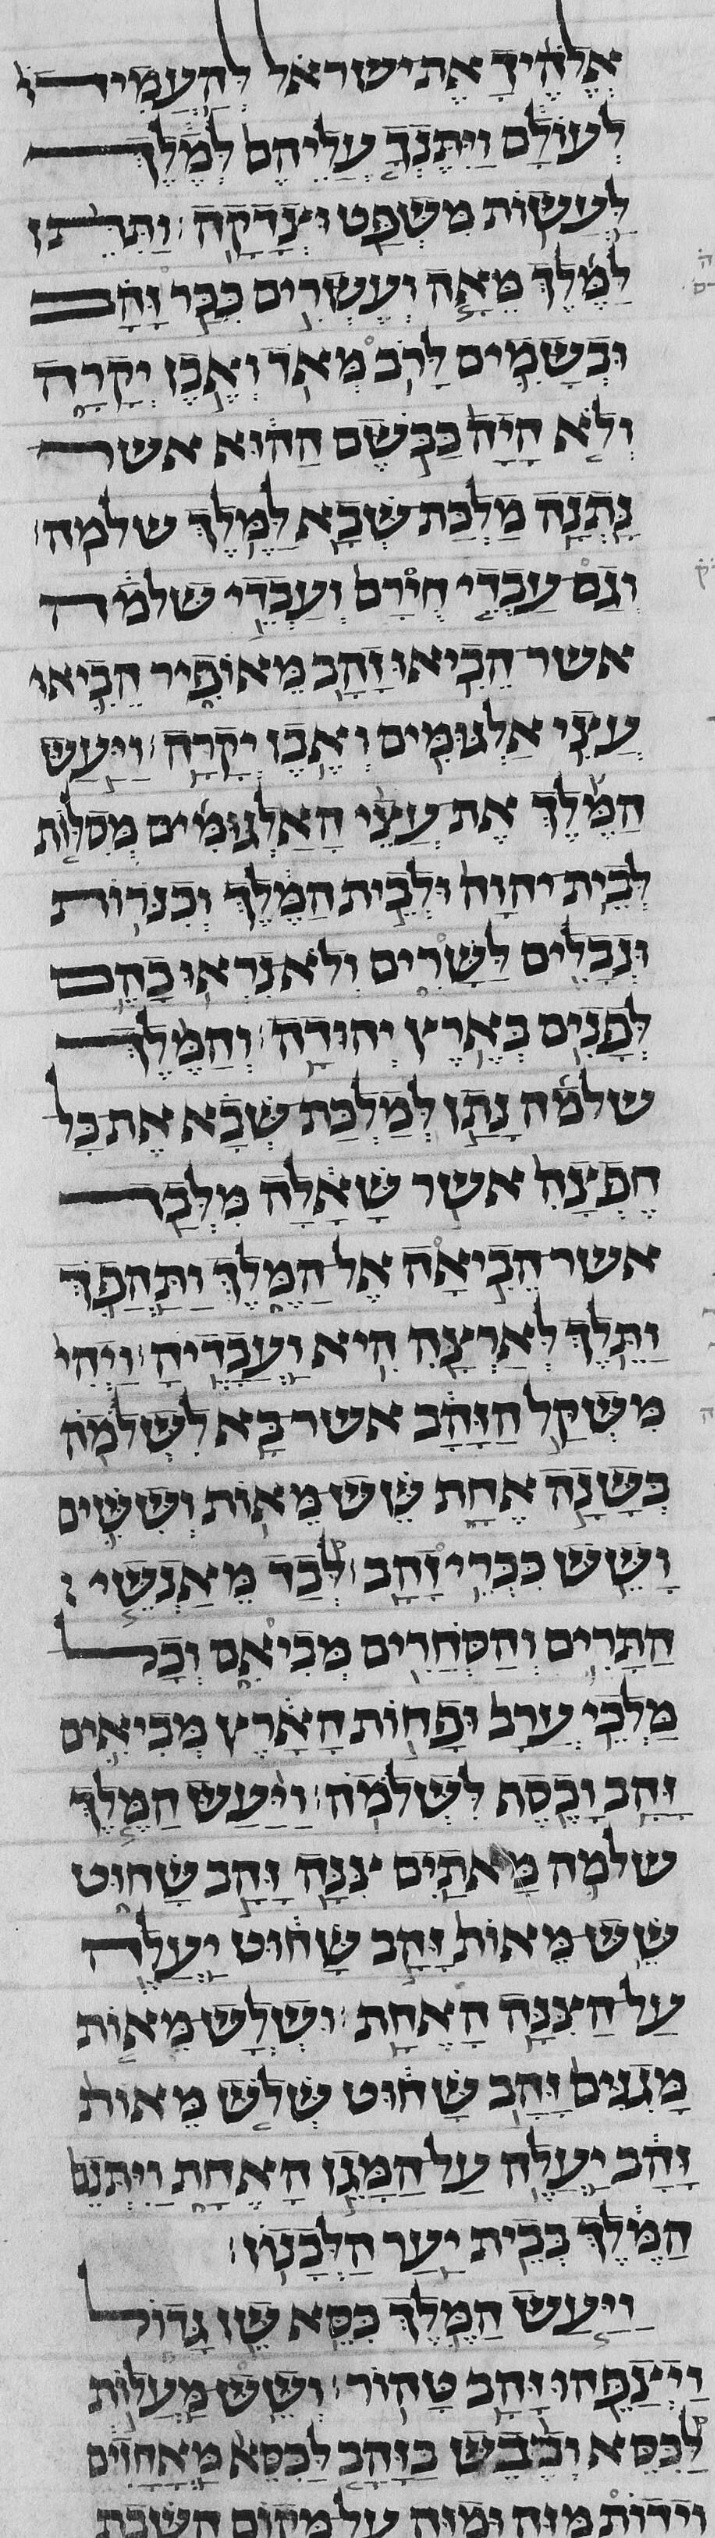 אֱלֹהֶיךָ אֶת יִשְׂרָאֵל לְהַעֲמִידוֹ
לְעוֹלָם וַיִּתֶּנְךָ עֲלֵיהֶם לְמֶלֶךְ
לַעֲשׂוֹת מִשְׁפָּט וּצְדָקָה׃ וַתִּתֵּן
לַמֶּלֶךְ מֵאָה וְעֶשְׂרִים כִּכַּר זָהָב
וּבְשָׂמִים לָרֹב מְאֹד וְאֶבֶן יְקָרָה
וְלֹא הָיָה כַּבֹּשֶׂם הַהוּא אשר
נָתְנָה מַלְכַּת שְׁבָא לַמֶּלֶךְ שלמה׃
וְגַם עַבְדֵי חִירָם וְעַבְדֵי שְׁלֹמֹה
אשר הֵבִיאוּ זָהָב מֵאוֹפִיר הֵבִיאוּ
עֲצֵי אַלְגּוּמִּים וְאֶבֶן יְקָרָה׃ וַיַּעַשׂ
הַמֶּלֶךְ אֶת עֲצֵי הָאַלְגּוּמִּים מְסִלּוֹת
לְבֵית יהוה וּלְבֵית הַמֶּלֶךְ וְכִנֹּרוֹת
וּנְבָלִים לַשָּׁרִים וְלֹא נִרְאוּ כָהֵם
לְפָנִים בְּאֶרֶץ יְהוּדָה׃ וְהַמֶּלֶךְ
שלמה נָתַן לְמַלְכַּת שְׁבָא אֶת כָּל
חֶפְצָהּ אשר שָׁאָלָה מִלְּבַד
אשר הֵבִיאָה אֶל הַמֶּלֶךְ וַתַּהֲפֹךְ
וַתֵּלֶךְ לְאַרְצָהּ הִיא וַעֲבָדֶיהָ׃ וַיְהִי
מִשְׁקַל הַזָּהָב אשר בָּא לִשְׁלֹמֹה
בְּשָׁנָה אֶחָת שֵׁשׁ מֵאוֹת וְשִׁשִּׁים
וָשֵׁשׁ כִּכְּרֵי זָהָב׃ לְבַד מֵאַנְשֵׁי
הַתָּרִים וְהַסֹּחֲרִים מְבִיאִים וְכָל
מַלְכֵי עֲרָב וּפַחוֹת הָאָרֶץ מְבִיאִים
זָהָב וָכֶסֶף לִשְׁלֹמֹה׃ וַיַּעַשׂ הַמֶּלֶךְ
שלמה מָאתַיִם צִנָּה זָהָב שָׁחוּט
שֵׁשׁ מֵאוֹת זָהָב שָׁחוּט יַעֲלֶה
עַל הַצִּנָּה הָאֶחָת׃ וּשְׁלֹשׁ מֵאוֹת
מָגִנִּים זָהָב שָׁחוּט שְׁלֹשׁ מֵאוֹת
זָהָב יַעֲלֶה עַל הַמָּגֵן הָאֶחָת וַיִּתְּנֵם
הַמֶּלֶךְ בְּבֵית יַעַר הַלְּבָנוֹן׃
וַיַּעַשׂ הַמֶּלֶךְ כִּסֵּא שֵׁן גָּדוֹל
וַיְצַפֵּהוּ זָהָב טָהוֹר׃ וְשֵׁשׁ מַעֲלוֹת
לַכִּסֵּא וְכֶבֶשׁ בַּזָּהָב לַכִּסֵּא מָאֳחָזִים
וְיָדוֹת מִזֶּה וּמִזֶּה עַל מְקוֹם הַשָּׁבֶת